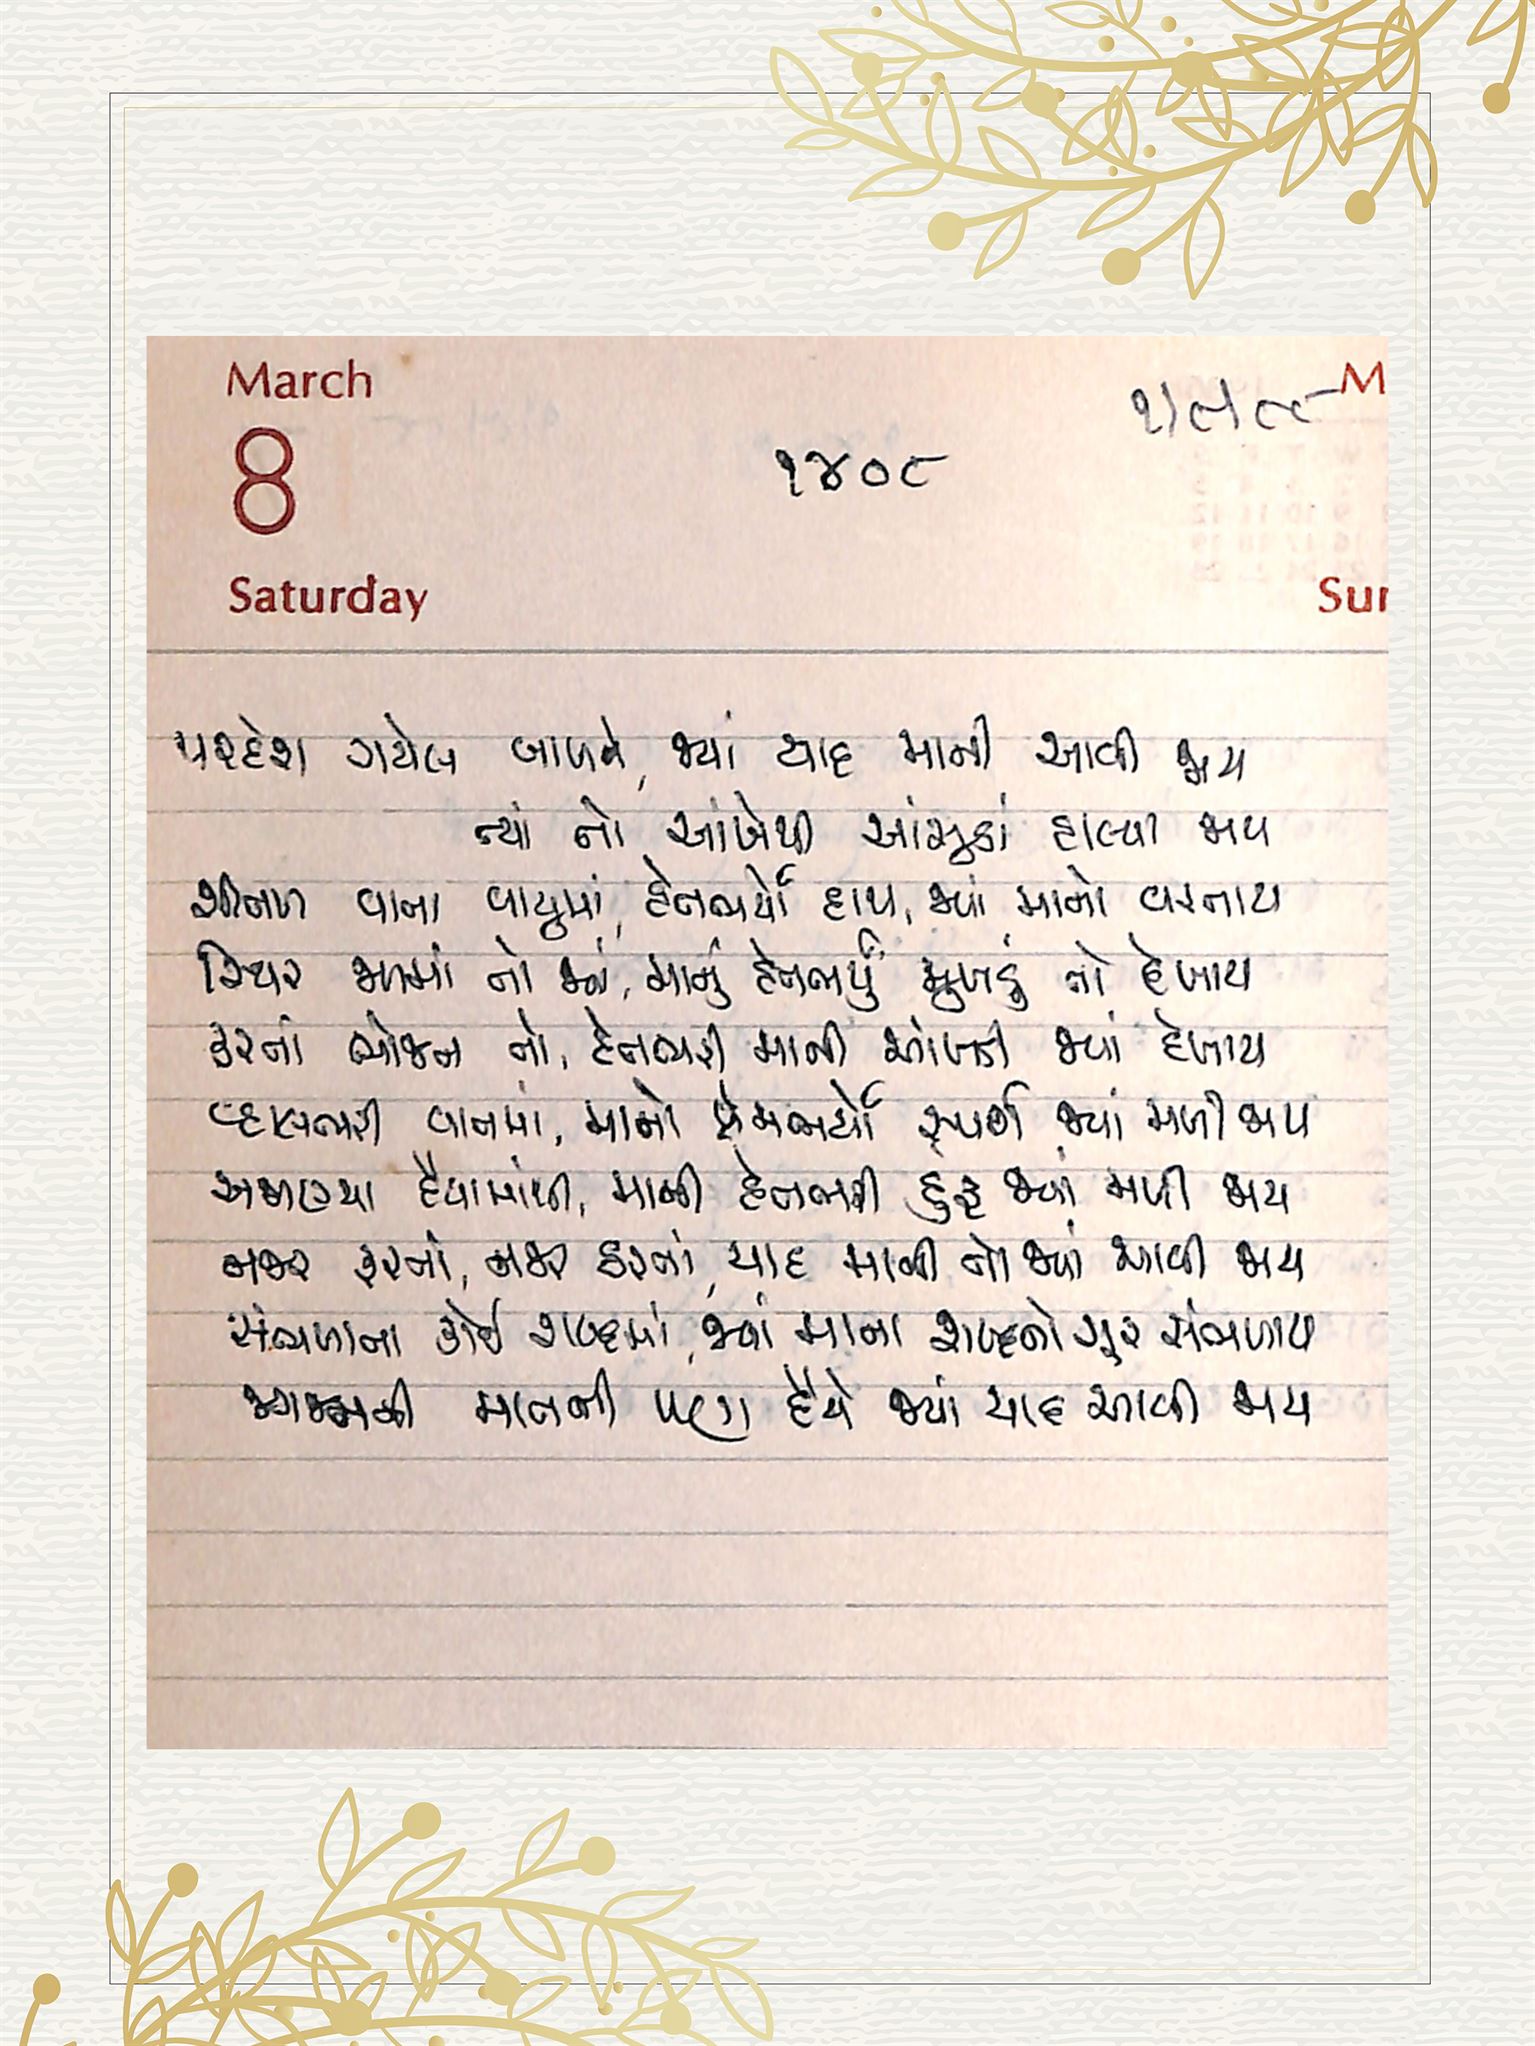 March
8
Saturday
૧૪૦૮
૧/૯/૮૮
M
Sur
પરદેશ ગયેલ બાળને, જ્યાં યાદ માની આવી જાય
ત્યાં તો આંખેથી આંસુડાં હાલ્યી જાય
શીતળ વાતા વાયુમાં, હેતભર્યો હાથ, જ્યાં માનો વરતાય
સ્થિર જળમાં તો જ્યાં, માનું હેતભર્યું મુખડું તો દેખાય
કરતાં ભોજન તો, હેતભરી માની આંખડી જ્યાં દેખાય
વ્હાલભરી વાતમાં, માનો પ્રેમભર્યો સ્પર્શ જ્યાં મળી જાય
અજાણ્યા હૈયામાંથી, માની હેતભરી હુંફ જ્યાં મળી જાય
નજર ફરતાં, નજર કરતાં, યાદ માની તો જ્યાં આવી જાય
સંભળાતા કોઈ શબ્દમાં, જ્યાં માના શબ્દનો સૂર સંભળાય
જગજ્જનની માતની પણ હૈયે જ્યાં યાદ આવી જાય